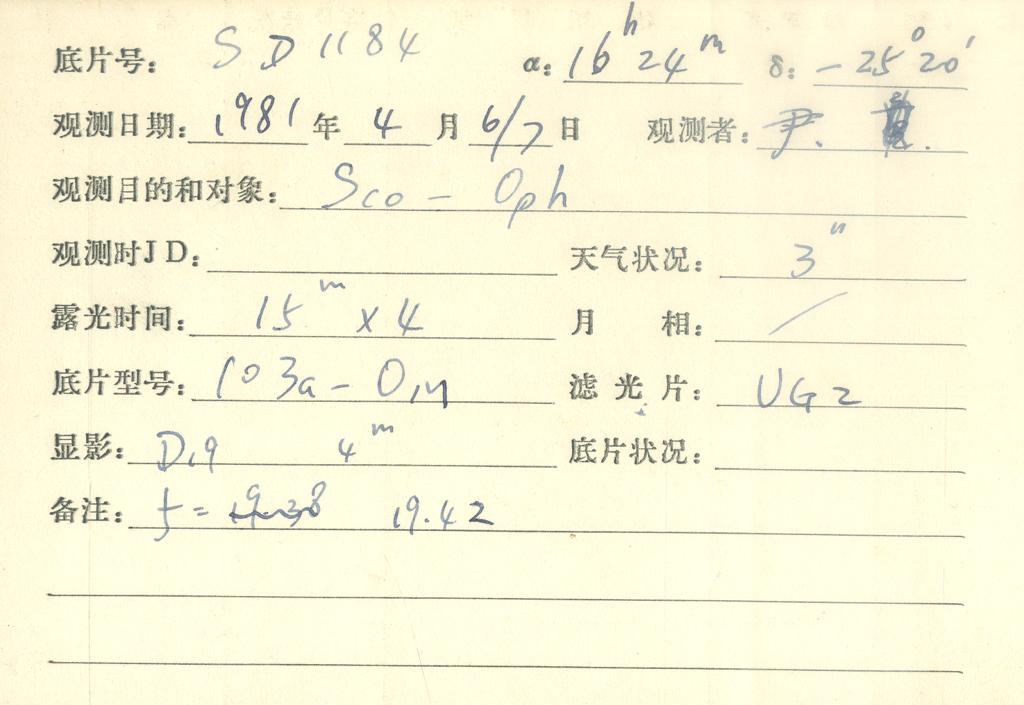 底片号: SD1184 α: 16h 24m δ: -25° 20′
观测日期: 1981 年 4 月 6/7 日 观测者: 尹.
观测目的和对象: Sco - Oph
观测时JD: 天气状况: 3"
露光时间: 15m × 4 月 相: /
底片型号: 103a-O, 滤光片: UG2
显影: D19 4m 底片状况:
备注: f = 19.38 19.42